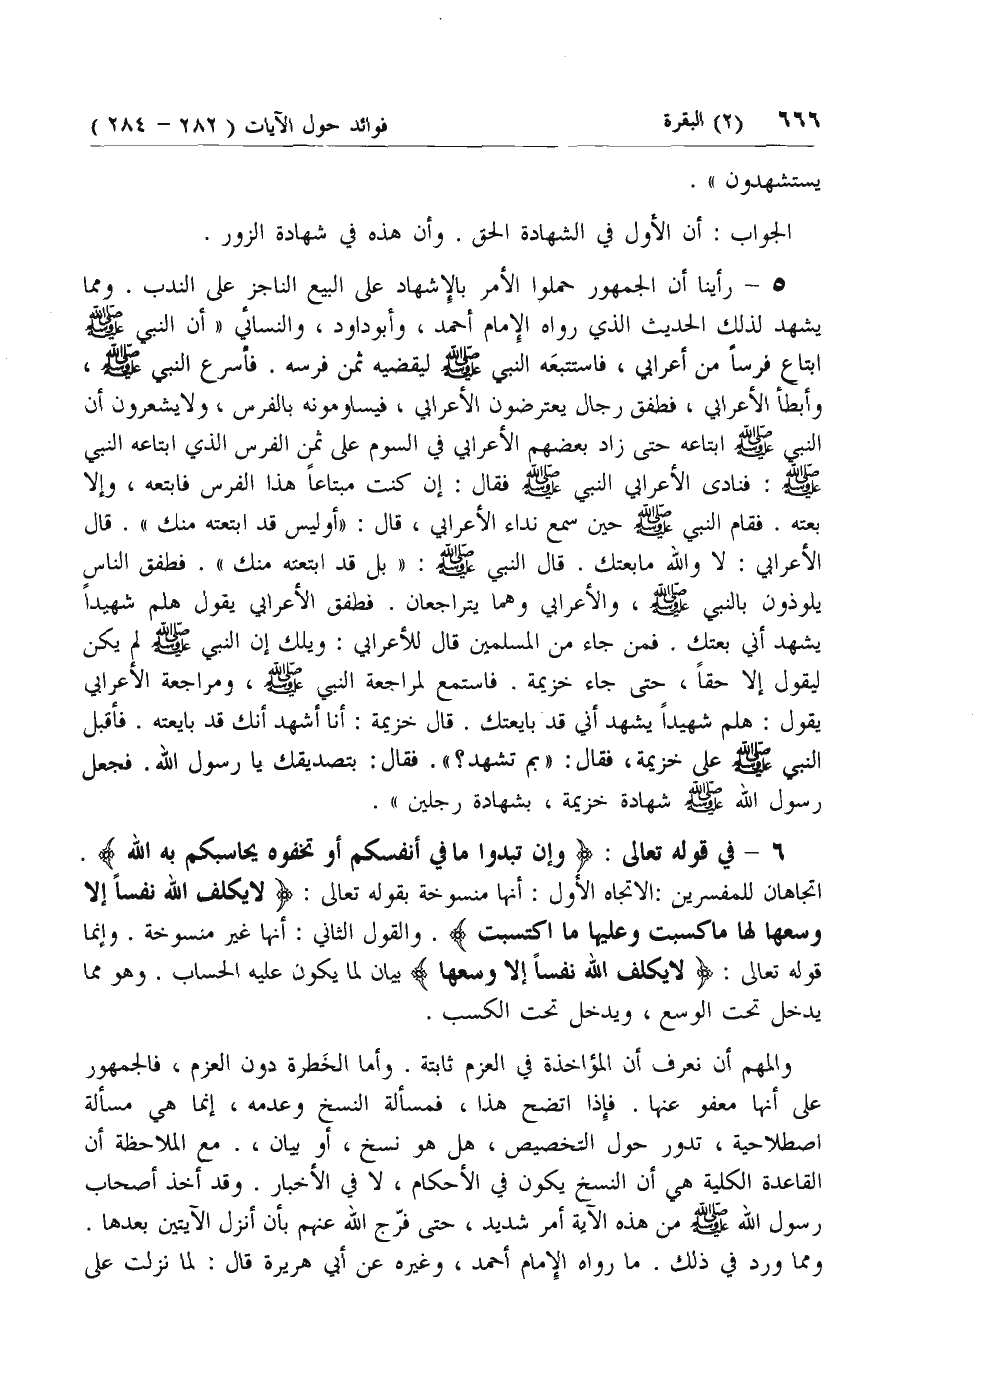 ٦٦٦ (٢) البقرة فوائد حول الآيات ( ٢٨٢ – ٢٨٤ )
يستشهدون » .
الجواب : أن الأول في الشهادة الحق . وأن هذه في شهادة الزور .
٥ – رأينا أن الجمهور حملوا الأمر بالإشهاد على البيع الناجز على الندب . ومما
يشهد لذلك الحديث الذي رواه الإمام أحمد ، وأبوداود ، والنسائي « أن النبي ﷺ
ابتاع فرساً من أعرابي ، فاستتبعَه النبي ﷺ ليقضيه ثمن فرسه . فأسرع النبي ﷺ ،
وأبطأ الأعرابي ، فطفق رجال يعترضون الأعرابي ، فيساومونه بالفرس ، ولايشعرون أن
النبي ﷺ ابتاعه حتى زاد بعضهم الأعرابي في السوم على ثمن الفرس الذي ابتاعه النبي
ﷺ : فنادى الأعرابي النبي ﷺ فقال : إن كنت مبتاعاً هذا الفرس فابتعه ، وإلا
بعته . فقام النبي ﷺ حين سمع نداء الأعرابي ، قال : «أوليس قد ابتعته منك » . قال
الأعرابي : لا والله مابعتك . قال النبي ﷺ : « بل قد ابتعته منك » . فطفق الناس
يلوذون بالنبي ﷺ ، والأعرابي وهما يتراجعان . فطفق الأعرابي يقول هلم شهيداً
يشهد أني بعتك . فمن جاء من المسلمين قال للأعرابي : ويلك إن النبي ﷺ لم يكن
ليقول إلا حقاً ، حتى جاء خزيمة . فاستمع لمراجعة النبي ﷺ ، ومراجعة الأعرابي
يقول : هلم شهيداً يشهد أني قد بايعتك . قال خزيمة : أنا أشهد أنك قد بايعته . فأقبل
النبي ﷺ على خزيمة، فقال: «بم تشهد؟». فقال: بتصديقك يا رسول الله. فجعل
رسول الله ﷺ شهادة خزيمة ، بشهادة رجلين » .
٦ – في قوله تعالى : ﴿ وإن تبدوا ما في أنفسكم أو تخفوه يحاسبكم به الله ﴾ .
اتجاهان للمفسرين :الاتجاه الأول : أنها منسوخة بقوله تعالى : ﴿ لايكلف الله نفساً إلا
وسعها لها ماكسبت وعليها ما اكتسبت ﴾ . والقول الثاني : أنها غير منسوخة . وإنما
قوله تعالى : ﴿ لايكلف الله نفساً إلا وسعها ﴾ بيان لما يكون عليه الحساب . وهو مما
يدخل تحت الوسع ، ويدخل تحت الكسب .
والمهم أن نعرف أن المؤاخذة في العزم ثابتة . وأما الخَطرة دون العزم ، فالجمهور
على أنها معفو عنها . فإذا اتضح هذا ، فمسألة النسخ وعدمه ، إنما هي مسألة
اصطلاحية ، تدور حول التخصيص ، هل هو نسخ ، أو بيان ، . مع الملاحظة أن
القاعدة الكلية هي أن النسخ يكون في الأحكام ، لا في الأخبار . وقد أخذ أصحاب
رسول الله ﷺ من هذه الآية أمر شديد ، حتى فرّج الله عنهم بأن أنزل الآيتين بعدها .
ومما ورد في ذلك . ما رواه الإمام أحمد ، وغيره عن أبي هريرة قال : لما نزلت على